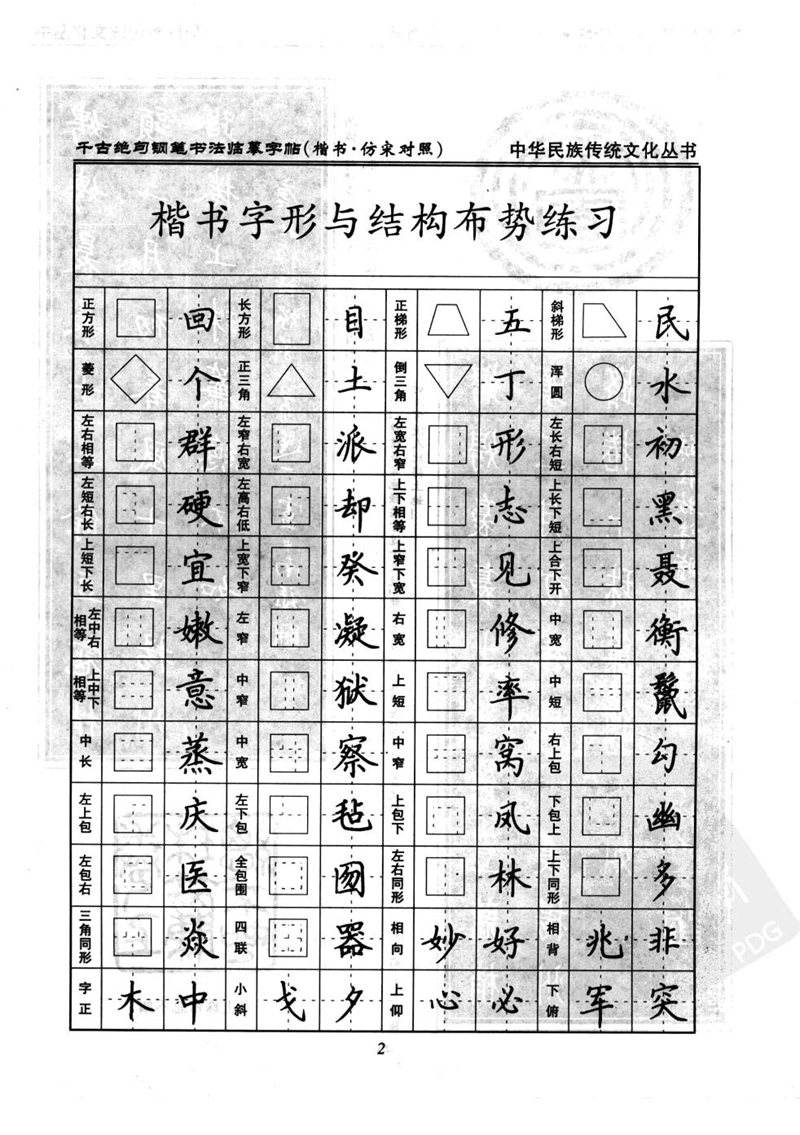 千古绝句钢笔书法临摹字帖(楷书·仿宋对照) 中华民族传统文化丛书
楷书字形与结构布势练习
正方形 回 长方形 目 正梯形 五 斜梯形 民
菱形 个 正三角 土 倒三角 丁 浑圆 水
左右相等 群 左窄右宽 派 左宽右窄 形 左长右短 初
左短右长 硬 左高右低 却 上下相等 志 上长下短 黑
上短下长 宜 上宽下窄 癸 上窄下宽 见 上合下开 聂
左中右相等 嫩 左窄 凝 右宽 修 中宽 衡
上中下相等 意 中窄 狱 上短 率 中短 鬣
中长 蒸 中宽 察 中窄 窝 右上包 勾
左上包 庆 左下包 毡 上包下 凤 下包上 幽
左包右 医 全包围 囫 左右同形 林 上下同形 多
三角同形 焱 四联 器 相向 妙 好 相背 兆 非
字正 木 中 小斜 戈 夕 上仰 心 必 下俯 军 突
2
PDG